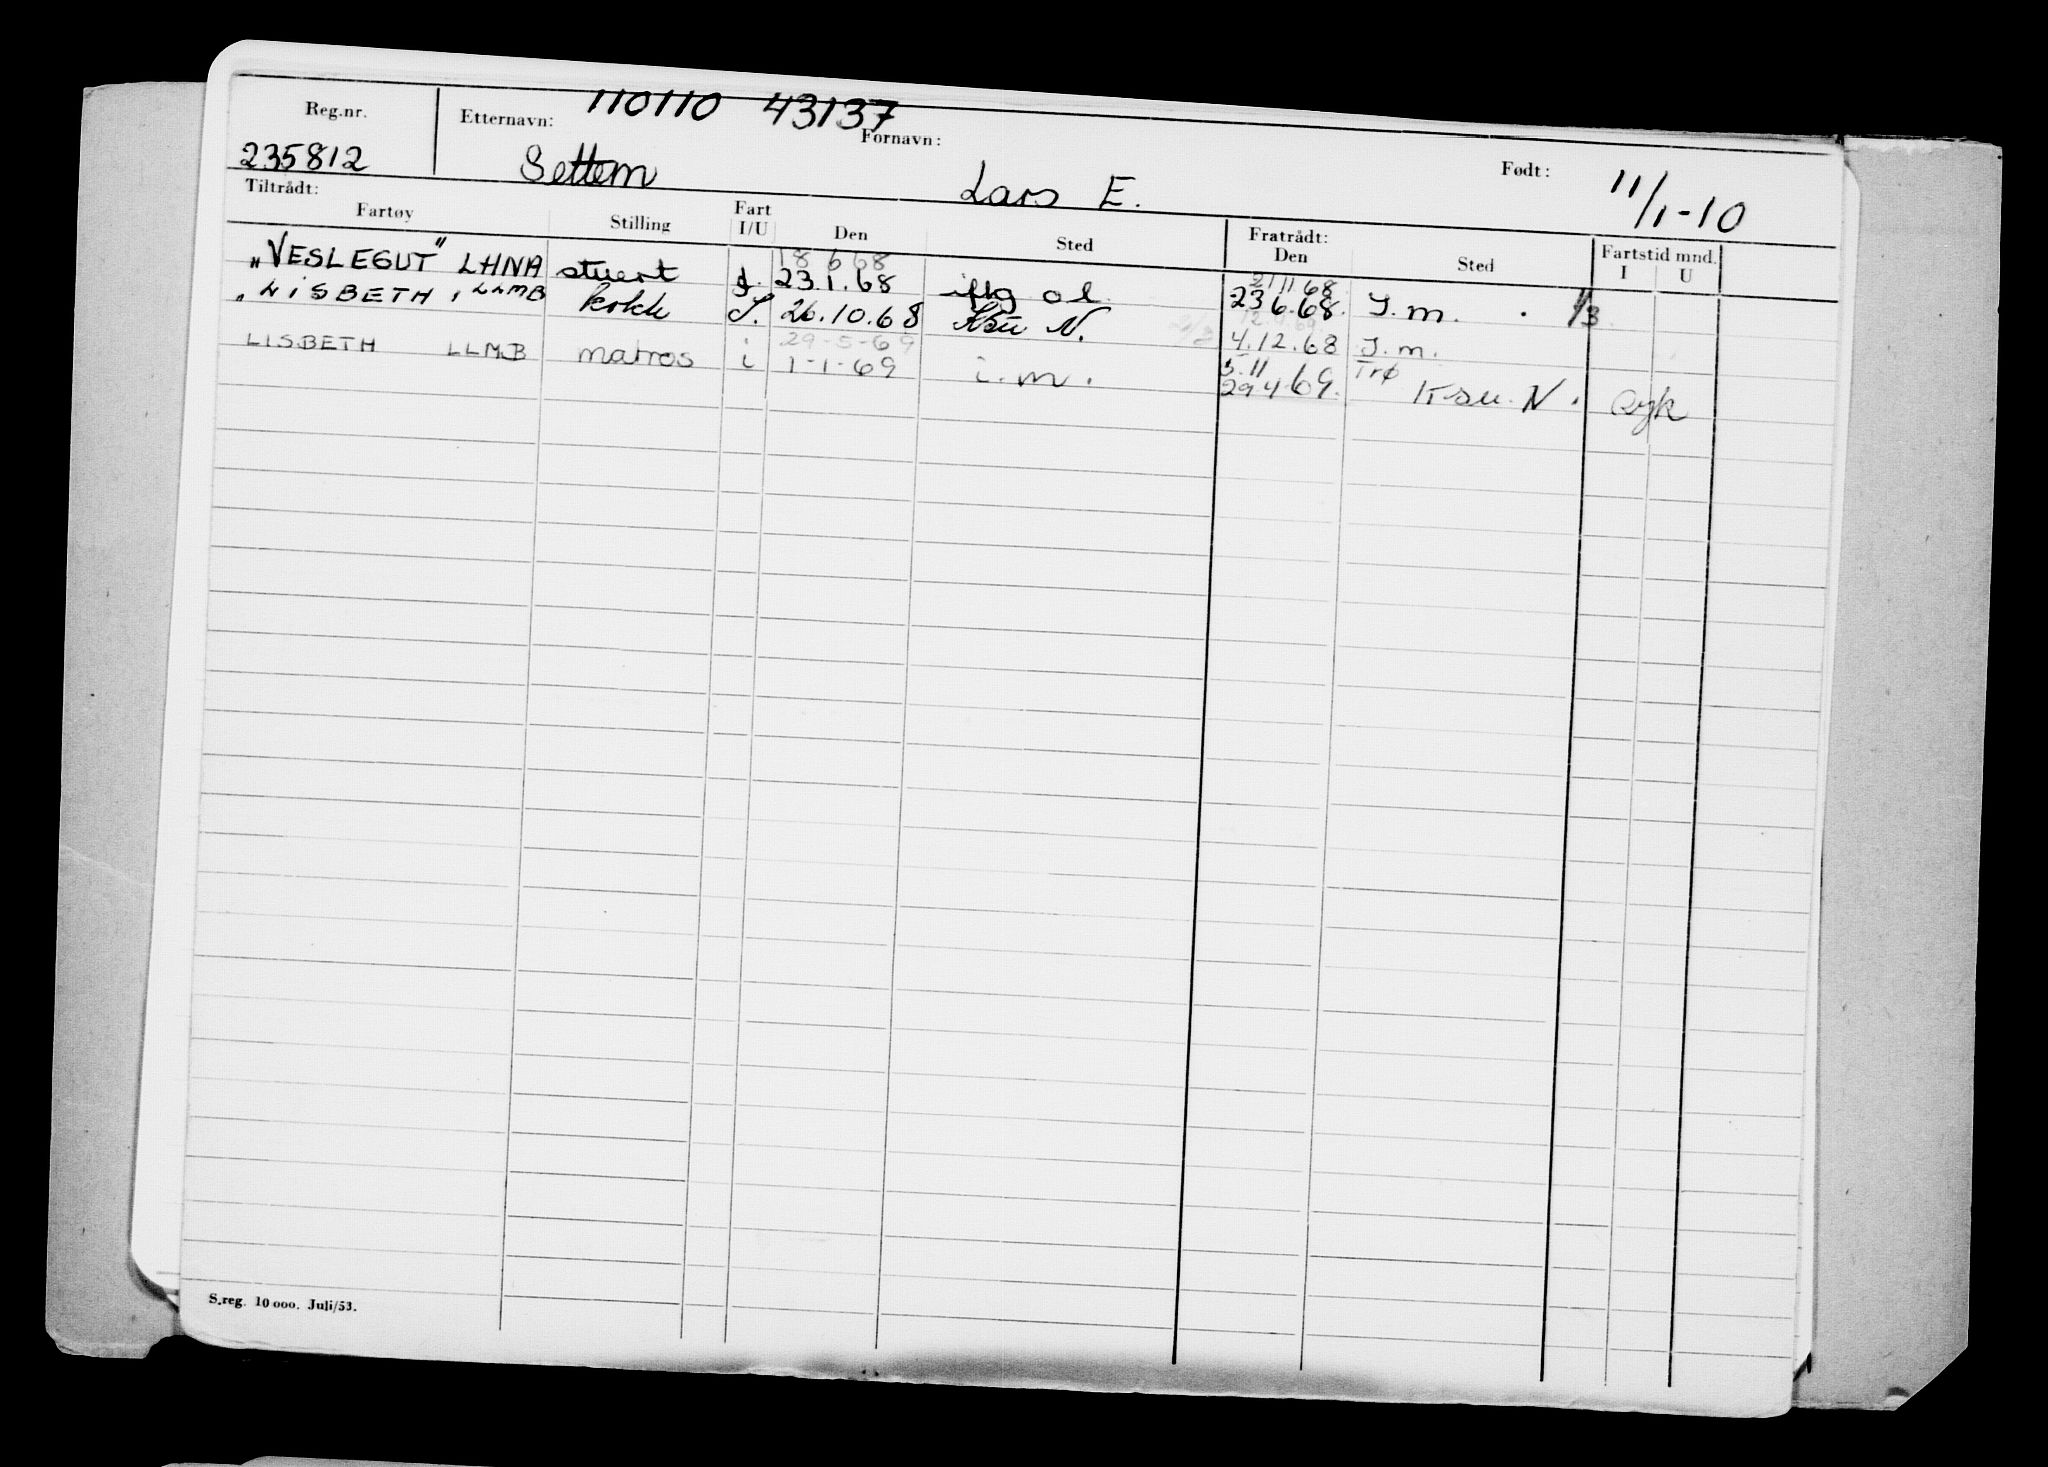 110110 43137
Reg.nr. Etternavn: Fornavn: Født:
235812 Settem Lars E. 11/1-10
Tiltrådt: Fratrådt:
Fartøy Stilling Fart I/U Den Sted Den Sted Fartstid mnd. I U
18 6 68 21 11 68
"VESLEGUT" LHNA stuert I. 23.1.68 iflg ol. 23 6.68. I.m. 1/3
"LISBETH" LLMB kokk I. 26.10.68 Ksu N. 4.12.68 I.m.
29-5-69 5.11 Trø
LISBETH LLMB matros i 1-1-69 i.m. 29 4 69. Ksu. N. syk
S.reg. 10 000. Juli/53.